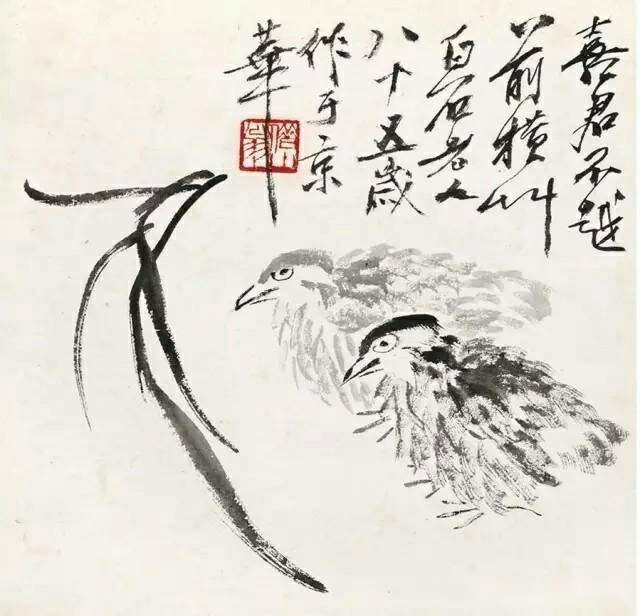 喜君不越
前橫艸
白石老人
八十五歲
作于京
華